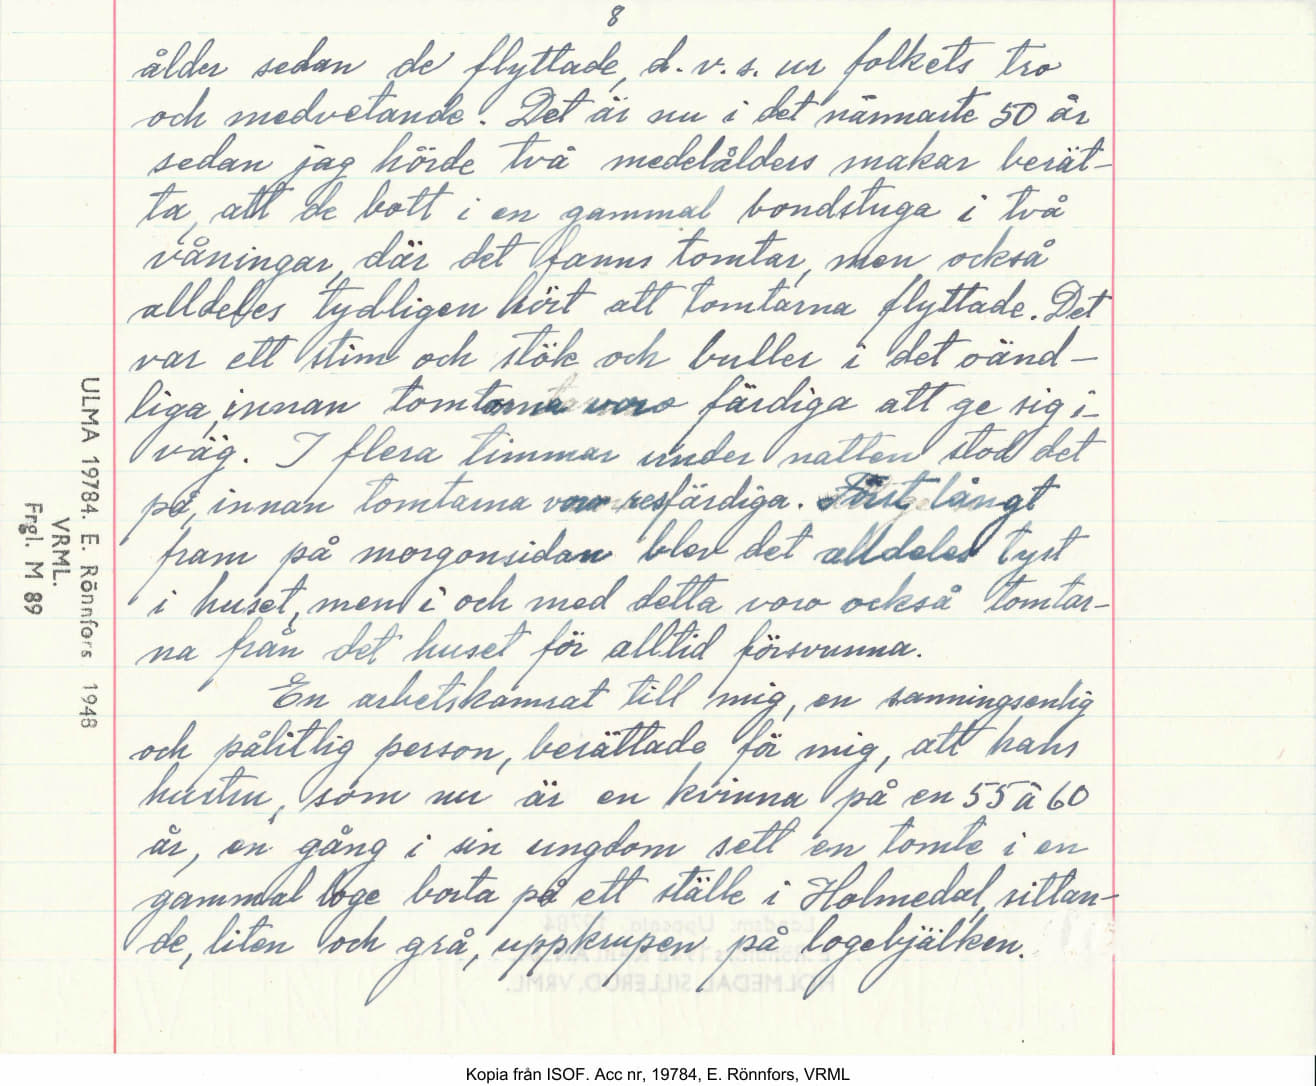 8
ålder sedan de flyttade, d.v.s. ur folkets tro
och medvetande. Det är nu i det närmaste 50 år
sedan jag hörde två medelålders makar berät-
ta, att de bott i en gammal bondstuga i två
våningar, där det fanns tomtar, men också
alldeles tydligen hört att tomtarna flyttade. Det
var ett stim och stök och buller i det oänd-
liga, innan tomtarna voro färdiga att ge sig i-
väg. I flera timmar under natten stod det
på, innan tomtarna voro resfärdiga. Först långt
fram på morgonsidan blev det alldeles tyst
i huset, men i och med detta voro också tomtar-
na från det huset för alltid försvunna.
En arbetskamrat till mig, en sanningsenlig
och pålitlig person, berättade för mig, att hans
hustru, som nu är en kvinna på en 55 à 60
år, en gång i sin ungdom sett en tomte i en
gammal loge borta på ett ställe i Holmedal, sittan-
de, liten och grå, uppkrupen på logebjälken.
ULMA 19784. E. Rönnfors 1948
VRML.
Frgl. M 89
Landsm. Uppsala 19784
HOLMEDAL SILLERUD, VRML.
Kopia från ISOF. Acc nr, 19784, E. Rönnfors, VRML